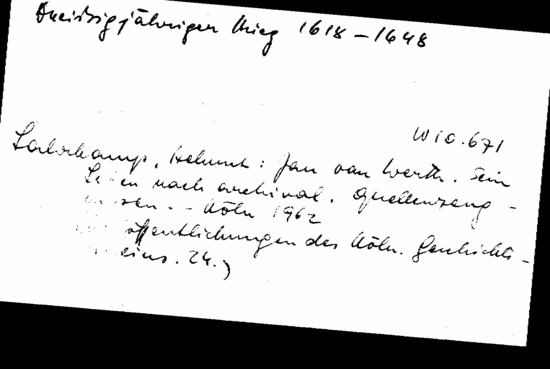 Dreissigjährigen Krieg 1618-1648
W10.671
Lahrkamp, Helmut: Jan van Werth. Sein
Leben nach archival. Quellenzeug-
nissen. - Köln 1962
öffentlichungen des Köln. Geschichts-
eins. 24.)